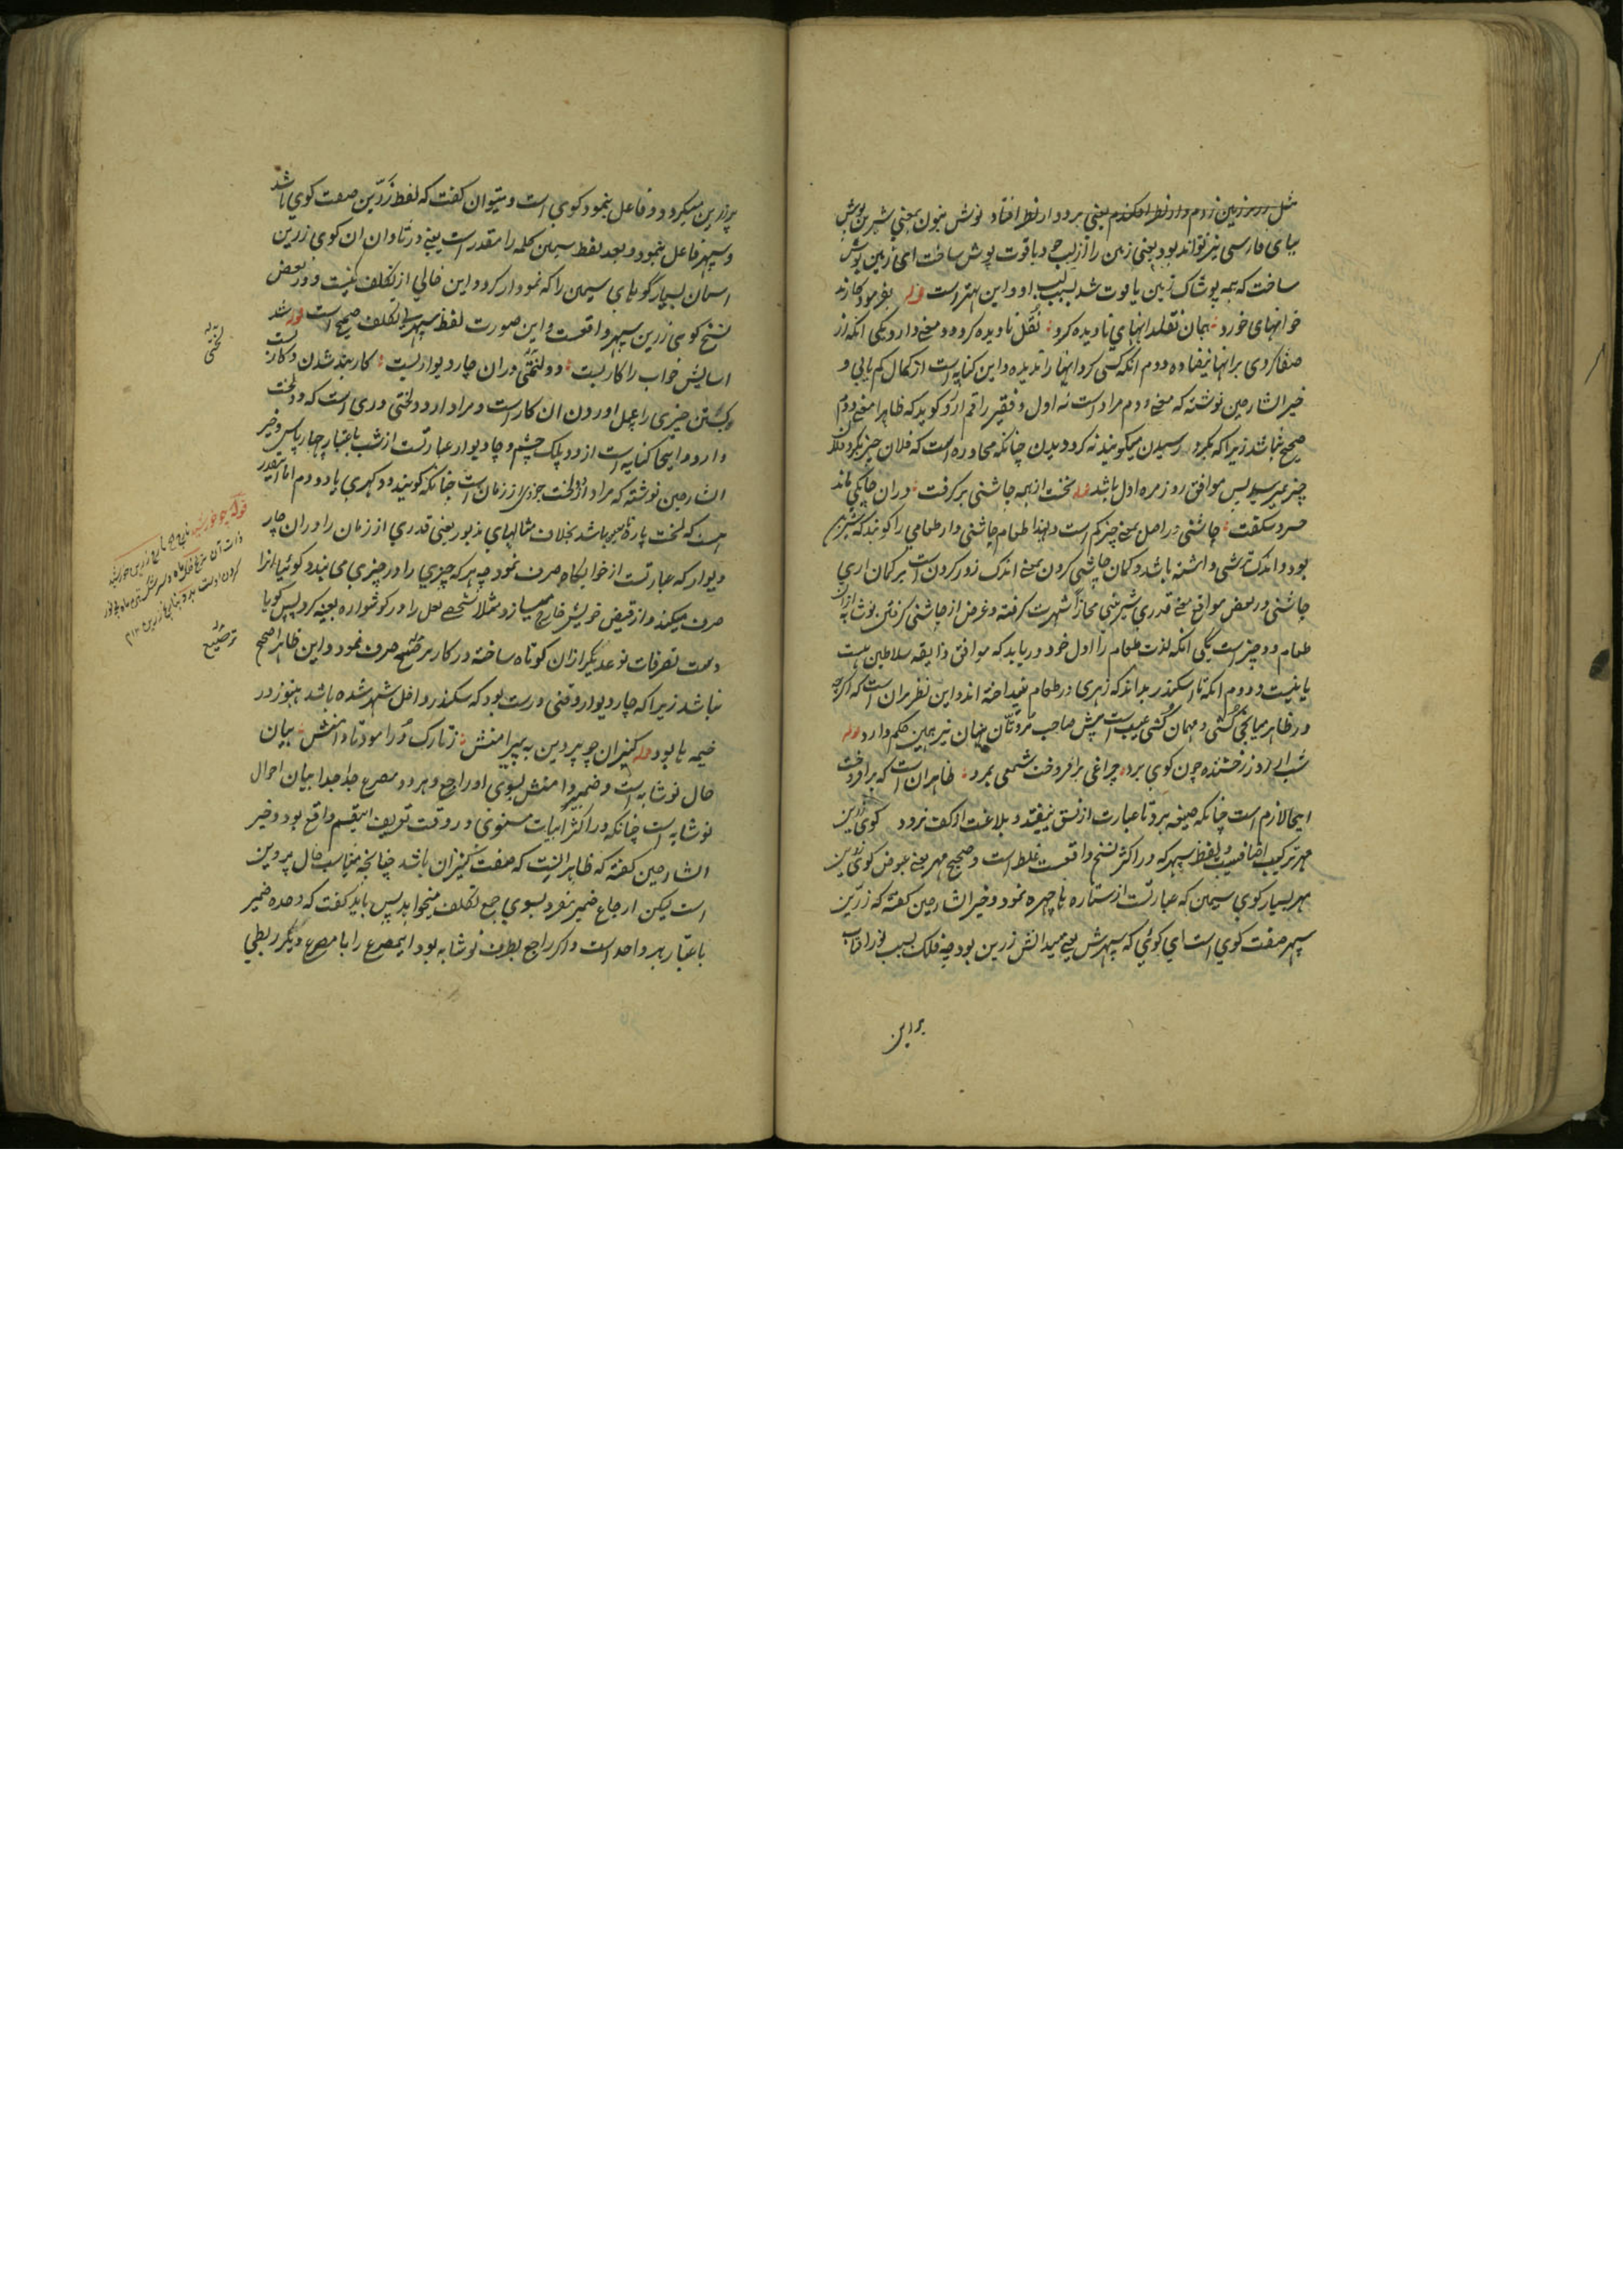 مثل بر بر زمین زدم و از نظر افکندم یعنی بر دو از نظر افتاد نوش بنون بمعنی شیرین پوش
ببای فارسی نیز تواند بود یعنی زمین را از لب چو یاقوت پوش ساخت ای زمین پوش
ساخت که همه پوشاک زمین یاقوت شد بسبب لب او و این بهتر است قوله بفرمود کارند
خوانهای خورد همان نقلدانهای نادیده کرد نقل نادیده کرد دو معنی دارد یکی انکه از
صفا کردی بر انها نیفتاده دوم انکه کسی کرد انها را ندیده و این کنایه است از کمال کم یابی و
خیر الشارحین نوشته که معنی دوم مراد است نه اول و فقیر راقم ارزو کوید که ظاهرا معنی دوم
صحیح نباشد زیرا که بکرد رسیدن میکویند نه کرد دیدن چنانکه محاوره است که فلان چیز بکرد فلان
چیز نمیرسد پس موافق روزمره اول باشد قوله نخست از همه چاشنی بر کرفت دران چابکی ماند
خسرو شکفت چاشنی در اصل بمعنی چیز کم است و لهذا طعام چاشنی دار طعامی را کویند که شیرین
بود و اندک ترشی داشته باشد و کمان چاشنی کردن بمعنی اندک زور کردن است بر کمان اری
چاشنی در بعض مواقع بمعنی قدری شیرینی مجازا شهرت کرفته و غرض از چاشنی کرفتن نوشابه از ان
طعام دو چیز است یکی انکه لذت طعام را اول خود دریابد که موافق ذایقه سلاطین هست
یا نیست و دوم انکه تا اسکندر بداند که زهری در طعام نینداخته اند و این نظر بران است که اکرچه
در ظاهر میانجی کشی و مهمان کشی عیب است پیش صاحب مروتان جهان نیز همین حکم دارد قوله
شب از روز رخشنده چون کوی برد چراغی برافروخت شمعی بمرد ظاهران است که برافروخت
اینجا لازم است چنانکه صیغه بمرد تا عبارت از نسق نیفتد و بلاغت از کف نرود کوی زرین
مهر ترکیب اضافیست و لفظ سپهر که در اکثر نسخ واقعست غلط است و صحیح مهر بمعنی عوض کوی زرین
مهر بسیار کوی سیمین که عبارتست از ستاره ها چهره نمود و خیر الشارحین کفته که زرین
سپهر صفت کوی است ای کوئی که سپهرش یعنی میدانش زرین بود چه فلک بسبب نور افتاب
برزرین
پر زرین میکردد و فاعل بنمود کوی است و میتوان کفت که لفظ زرین صفت کوی باشد
و سپهر فاعل بنمود و بعد لفظ سیمین کلمه را مقدر است یعنی در تاوان ان کوی زرین
اسمان بسیار کویهای سیمین را که نمودار کرد و این خالی از تکلف نیست و در بعض
نسخ کوی زرین سپهر واقعست و این صورت لفظ سپهر بی تکلف صحیح است قوله شد
اسایش خواب را کار بست دو لختی دران چار دیوار بست کار بند شدن و کار بست
و بستن چیزی را بعمل اوردن ان کار است و مراد از دو لختی دری است که دو لخت
دارد و اینجا کنایه است از دو پلک چشم و چار دیوار عبارتست از شب باعتبار چهار پاس و خیر
الشارحین نوشته که مراد از دو لخت جزوی از زمان است چنانکه کویند دو کهری یا دو دم اما اینقدر
هست که لخت پاره میباشد بخلاف مثالهای مذبور یعنی قدری از زمان را دران چار
دیوار که عبارتست از خوابکاه صرف نمود چه هر که چیزی را در چیزی می نهد کوئیا انرا
صرف میکند و از قبض خویش خارج میسازد مثلا شخصی لعل را در کوشواره بعینه کرد پس کویا
دست تصرفات نوعدیکر ازان کوتاه ساخته در کار مرصع صرف نمود و این ظاهرا صحیح
نباشد زیرا که چار دیوار وقتی درست بود که سکندر داخل شهر شده باشد هنوز در
خیمه ها بود قوله کنیزان چو پروین به پیرامنش ز تارک در اموده تا دامنش بیان
حال نوشابه است و ضمیر دامنش بسوی او راجع و هر دو مصرع جدا جدا بیان احوال
نوشابه است چنانکه در اکثر ابیات مثنوی در وقت تعریف اینقسم واقع بود و خیر
الشارحین کفته که ظاهر انیست که صفت کنیزان باشد چنانچه مناسب حال پروین
است لیکن ارجاع ضمیر مفرد بسوی جمع تکلف میخواهد پس باید کفت که وحده ضمیر
باعتبار هر واحد است و اکر راجع بطرف نوشابه بود اینمصرع را با مصرع دیکر ربطی
لختی
قوله چو خورشید
ترصیع